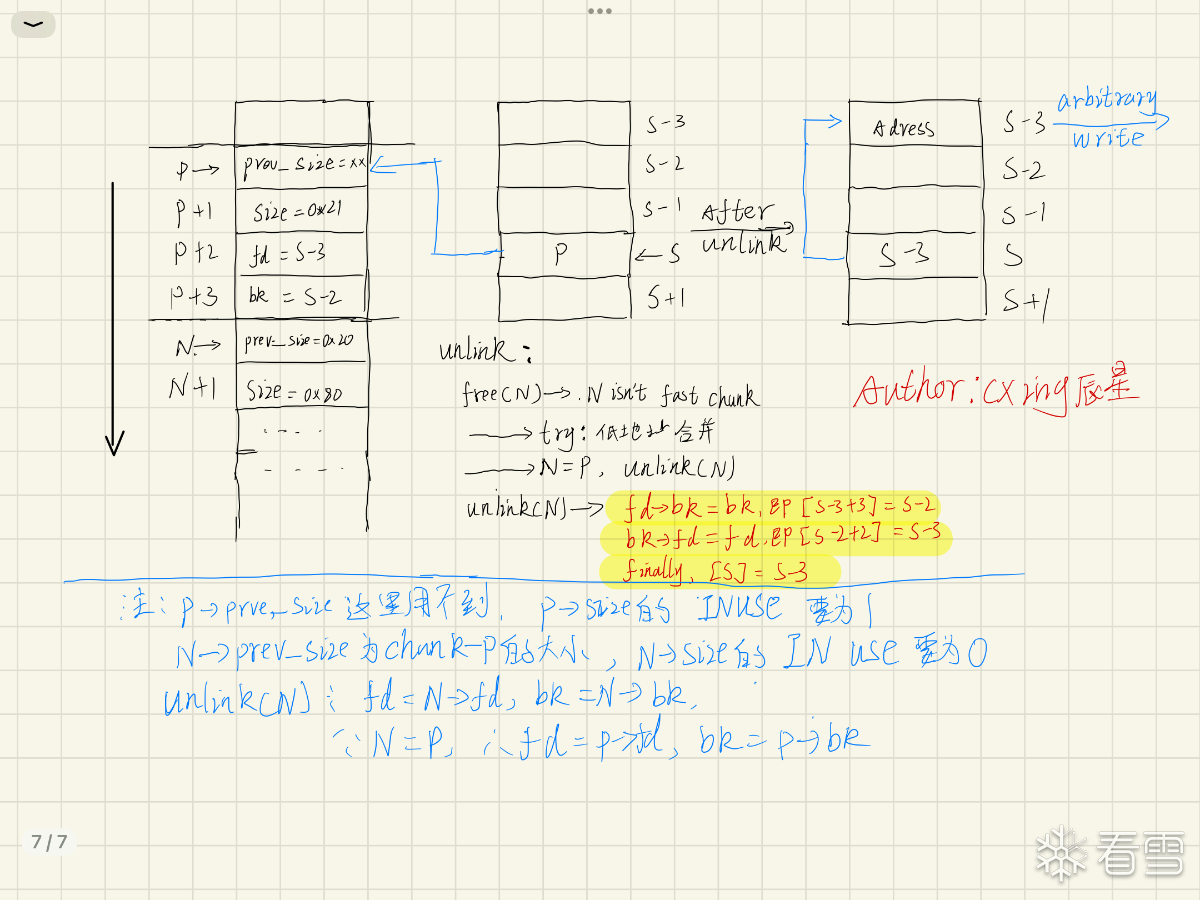 S-3
S-2
S-1
P
← S
S+1
P→
prev_size=xx
P+1
Size=0x21
P+2
fd = S-3
P+3
bk = S-2
N→
prev_size=0x20
N+1
Size=0x80
After
unlink
Adress
S-3
S-2
S-1
S-3
S
S+1
arbitrary
write
unlink:
free(N)→ N isn't fast chunk
→ try: 低地址合并
→ N=P, unlink(N)
unlink(N)→ fd→bk = bk, 即 [S-3+3] = S-2
bk→fd = fd, 即 [S-2+2] = S-3
finally, [S] = S-3
Author: cxing辰星
注: P→prve_size 这里用不到, P→size的 INUSE 要为1
N→prev_size为chunk-P的大小, N→size的 INUSE 要为0
unlink(N): fd = N→fd, bk = N→bk,
∵ N=P, ∴ fd = P→fd, bk = P→bk
7/7
看雪